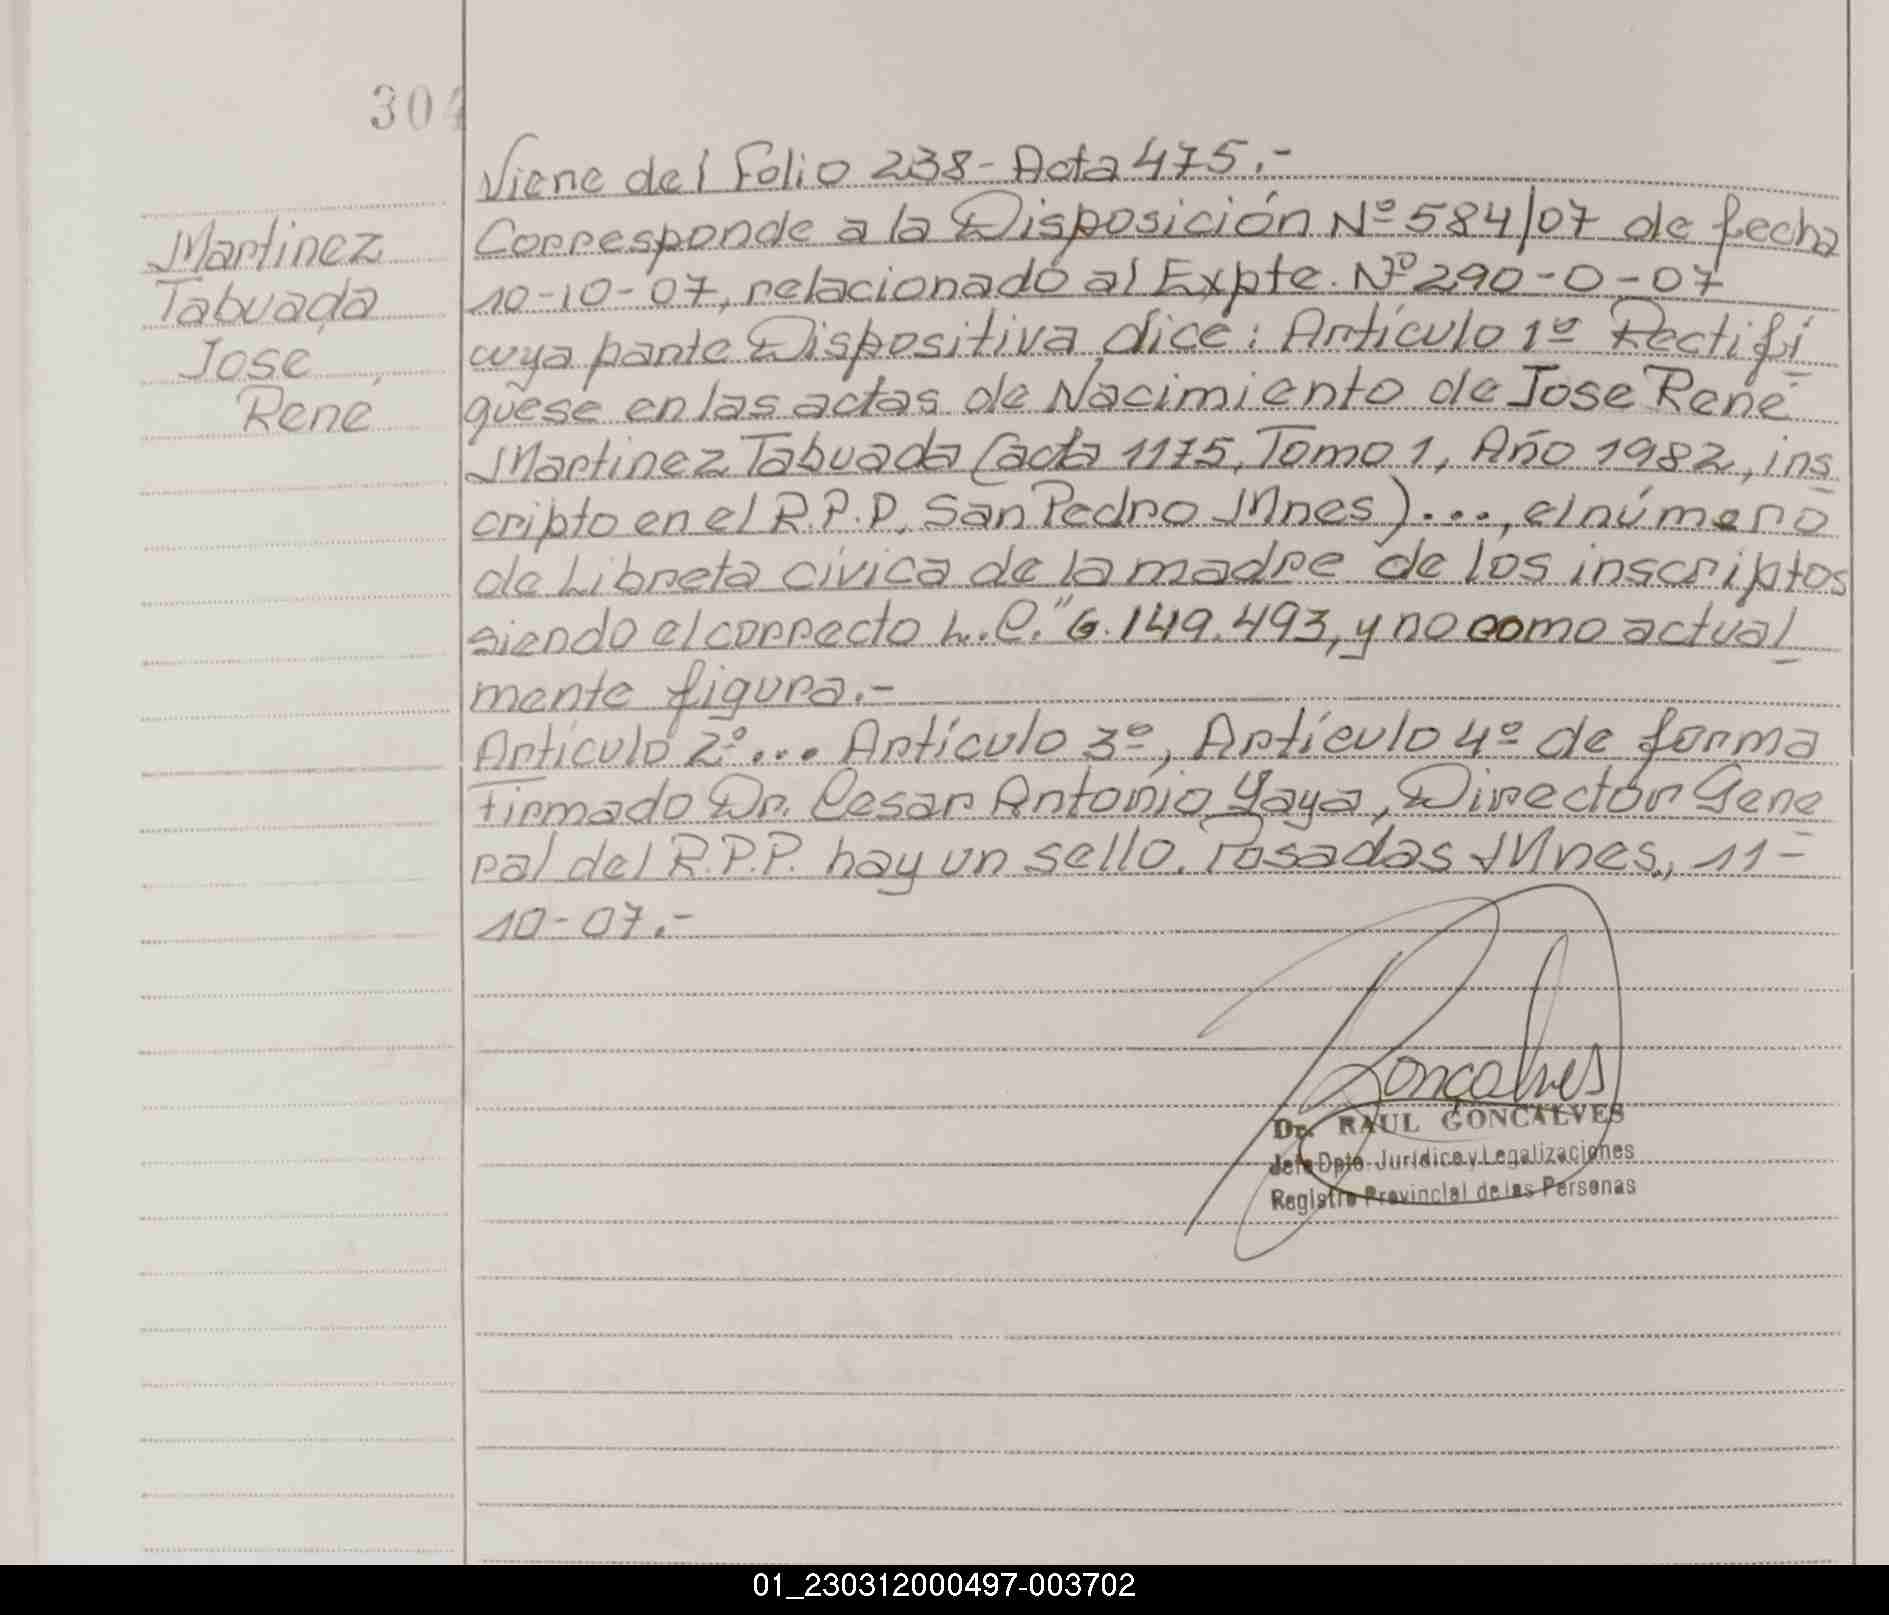 304
Viene del Folio 238 - Acta 475.-
Martinez
Tabuada
Jose
Rene
Corresponde a la Disposición Nº 584/07 de fecha
10-10-07, relacionado al Expte. Nº 290-0-07
cuya parte Dispositiva dice: Artículo 1º Rectifí
quese en las actas de Nacimiento de Jose René
Martinez Tabuada (acta 1175, Tomo 1, Año 1982, ins
cripto en el R.P.P. San Pedro Mnes)..., el número
de Libreta cívica de la madre de los inscriptos
siendo el correcto L.C." 6.149.493, y no como actual
mente figura.-
Artículo 2º... Artículo 3º, Artículo 4º de forma
Firmado Dr. Cesar Antonio Yaya, Director Gene
ral del R.P.P. hay un sello. Posadas Mnes., 11-
10-07.-
Gonçalves
Dr. RAUL GONCALVES
Jefe Dpto. Jurídico y Legalizaciones
Registro Provincial de las Personas
01_230312000497-003702